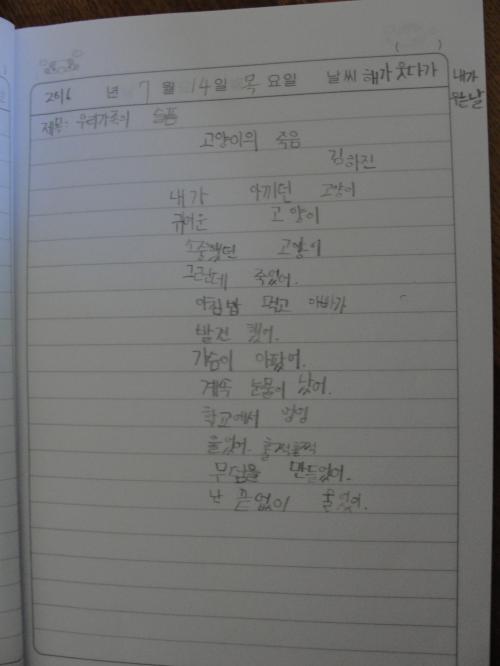 ( )
2016 년 7 월 14 일 목 요일 날씨 해가 웃다가 내가 우는 날
제목: 우리가족의 슬픔
고양이의 죽음
김하진
내가 아끼던 고양이
귀여운 고양이
소중했던 고양이
그런데 죽었어.
아침밥 먹고 아빠가
발견 했어.
가슴이 아팠어.
계속 눈물이 났어.
학교에서 엉엉
울었어. 훌쩍훌쩍
무덤을 만들었어.
난 끝없이 울었어.